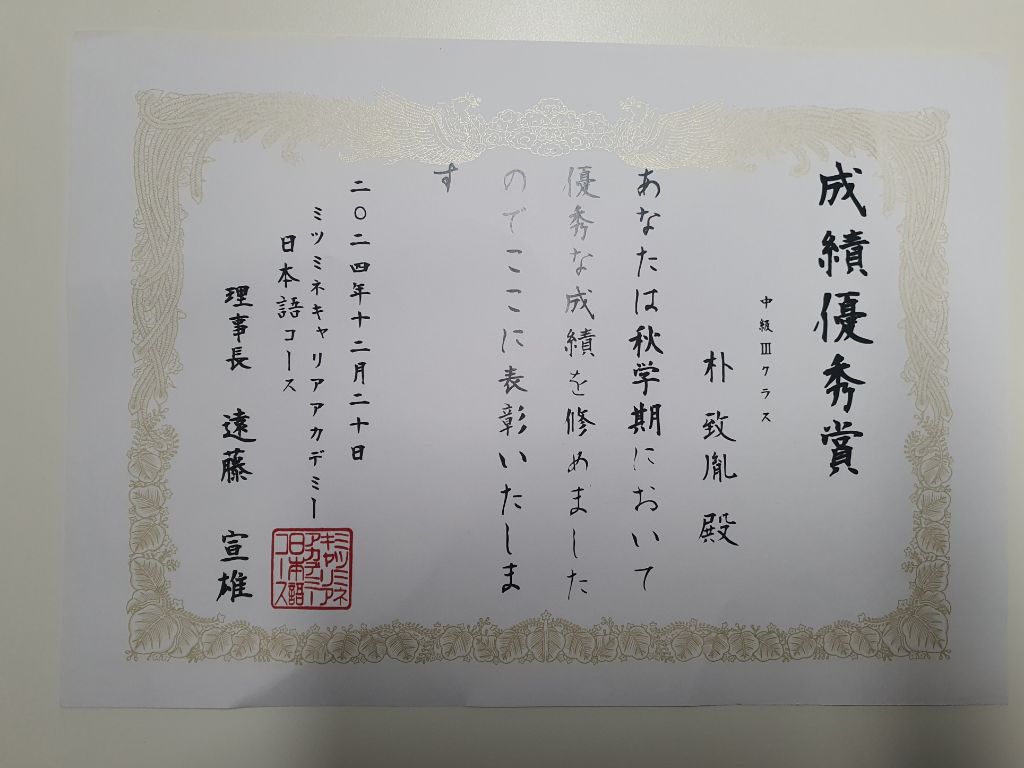 成績優秀賞
中級Ⅲクラス
朴致胤 殿
あなたは秋学期において
優秀な成績を修めました
のでここに表彰いたしま
す
二〇二四年十二月二十日
ミツミネキャリアアカデミー
日本語コース
理事長 遠藤 宣雄
ミツミネ
キャリア
アカデミー
日本語
コース